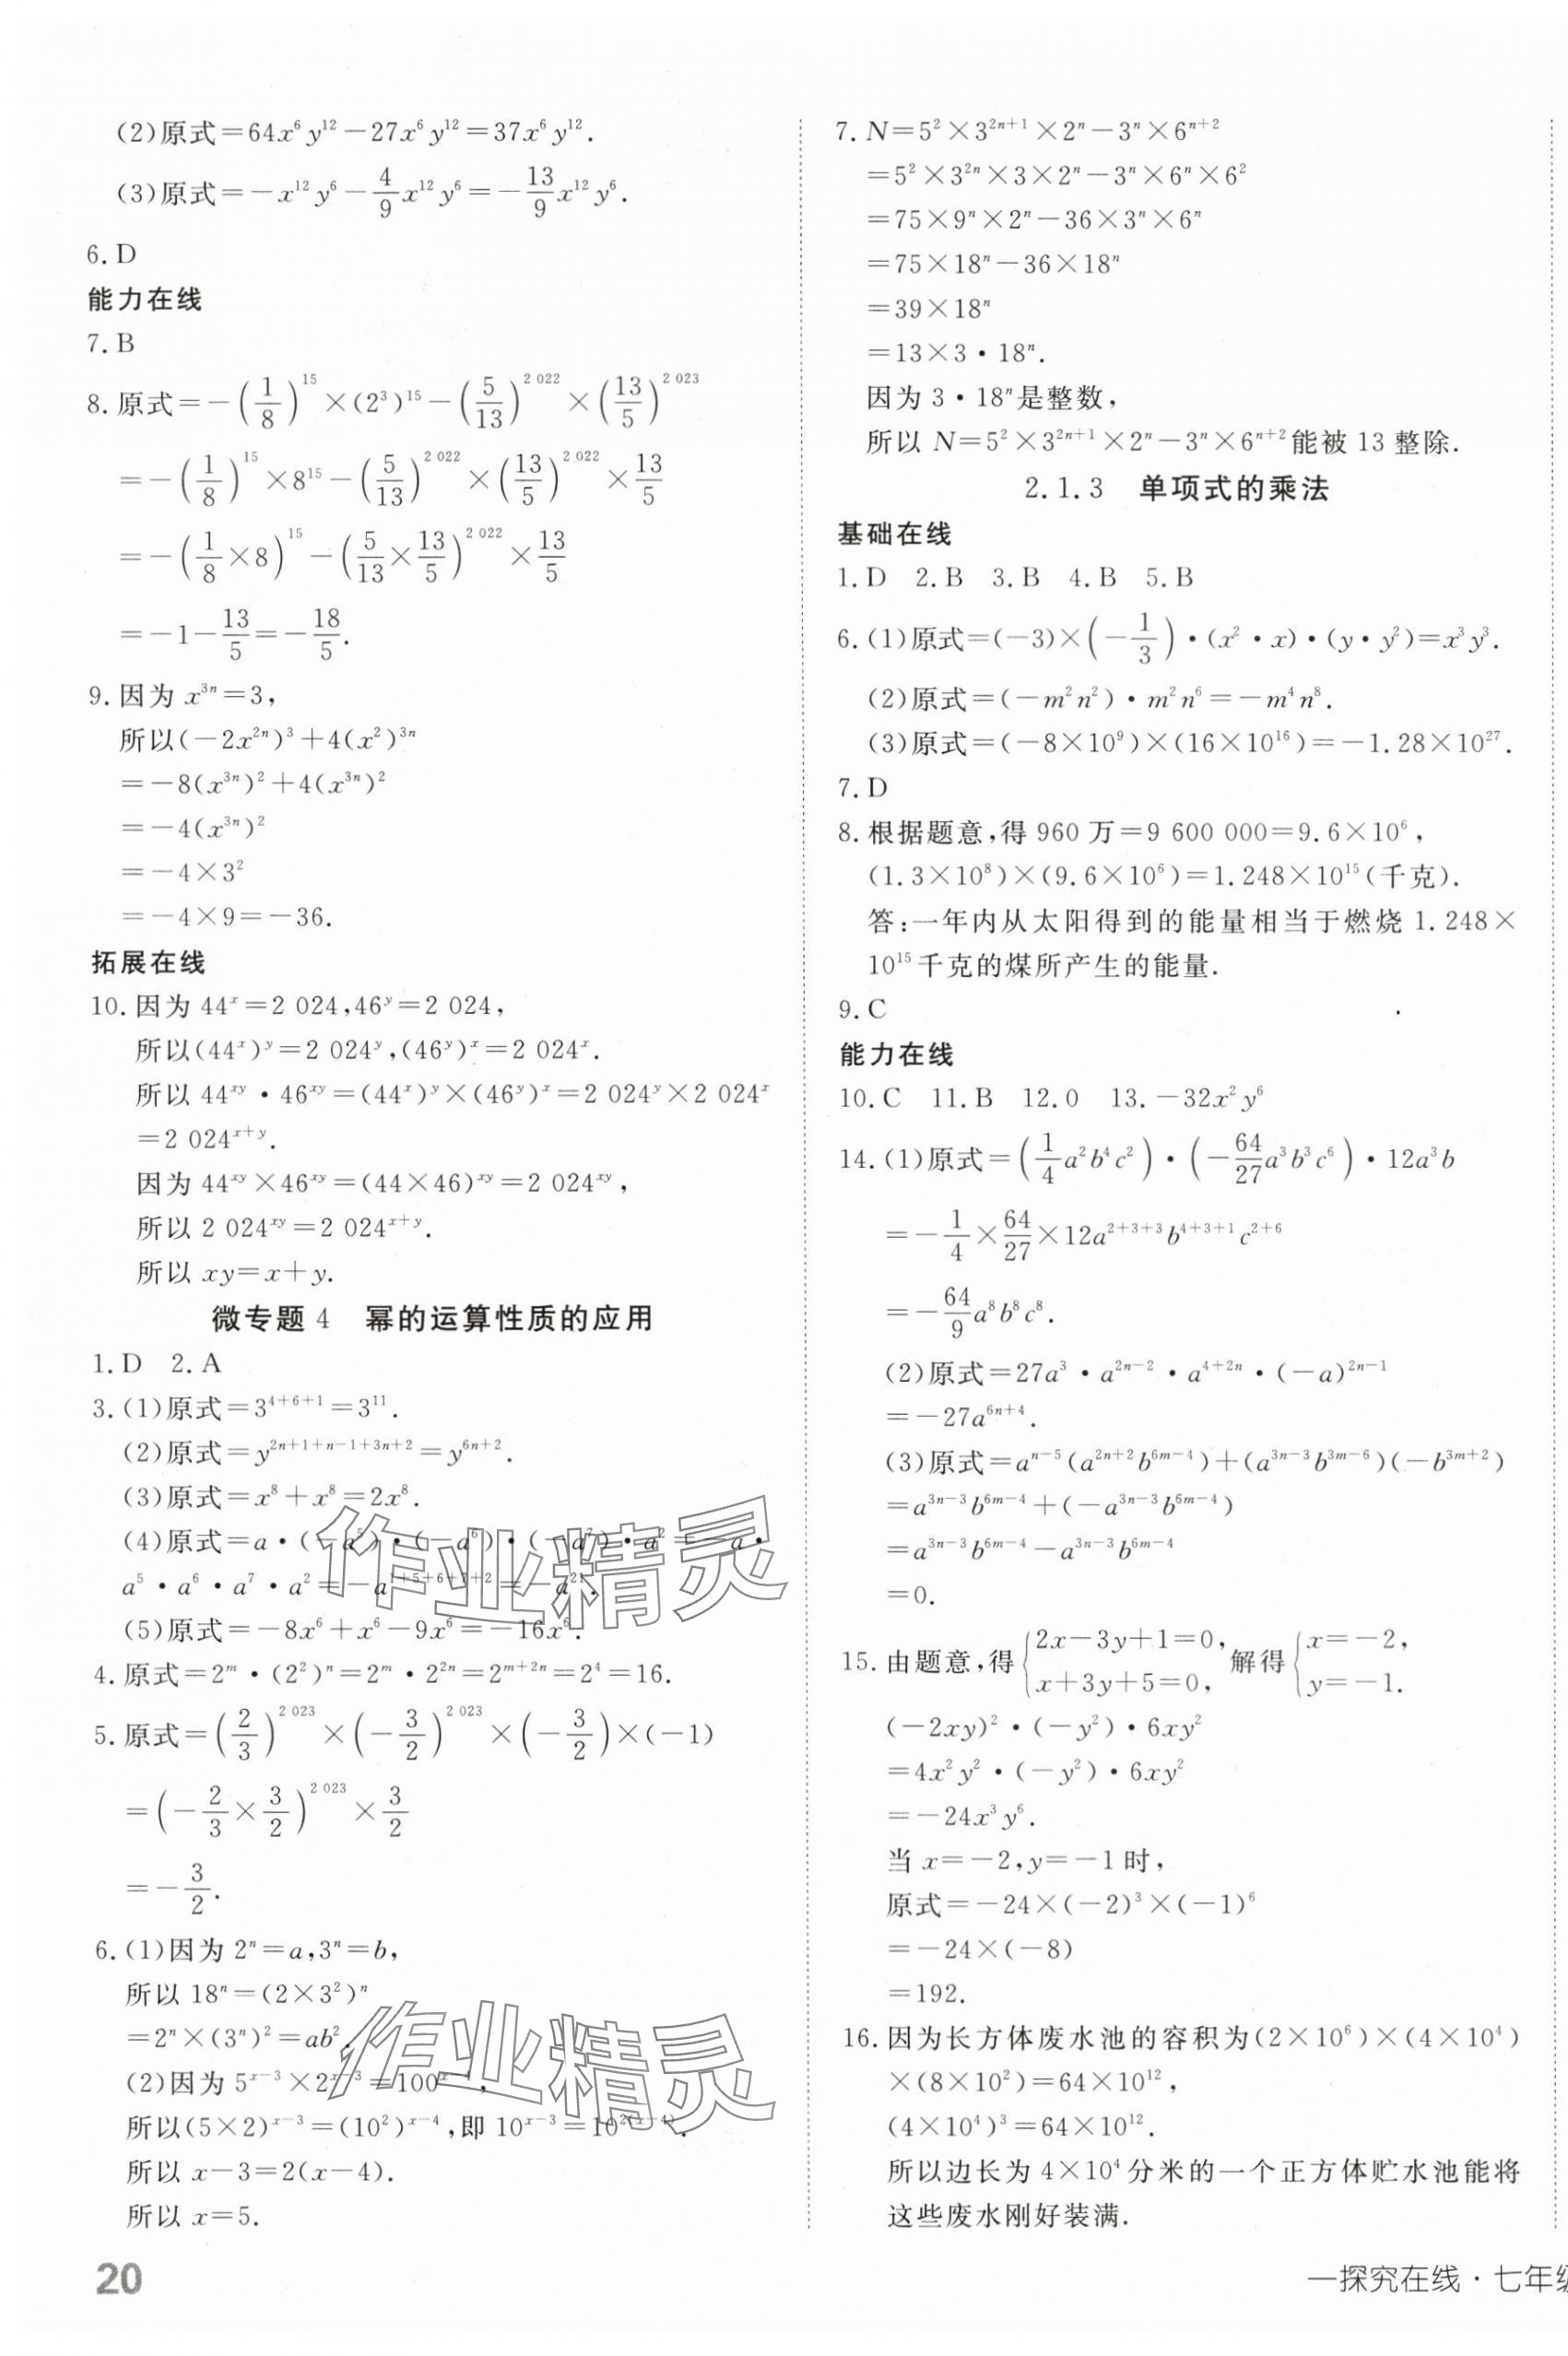 (2)原式=64x⁶y¹²-27x⁶y¹²=37x⁶y¹².
(3)原式=-x¹²y⁶-4/9x¹²y⁶=-13/9x¹²y⁶.
6.D
能力在线
7.B
8.原式=-(1/8)¹⁵×(2³)¹⁵-(5/13)^2 022×(13/5)^2 023
=-(1/8)¹⁵×8¹⁵-(5/13)^2 022×(13/5)^2 022×13/5
=-(1/8×8)¹⁵-(5/13×13/5)^2 022×13/5
=-1-13/5=-18/5.
9.因为 x³ⁿ=3,
所以(-2x²ⁿ)³+4(x²)³ⁿ
=-8(x³ⁿ)²+4(x³ⁿ)²
=-4(x³ⁿ)²
=-4×3²
=-4×9=-36.
拓展在线
10.因为 44^x=2 024,46^y=2 024,
所以(44^x)^y=2 024^y,(46^y)^x=2 024^x.
所以 44^xy·46^xy=(44^x)^y×(46^y)^x=2 024^y×2 024^x
=2 024^(x+y).
因为 44^xy×46^xy=(44×46)^xy=2 024^xy,
所以 2 024^xy=2 024^(x+y).
所以 xy=x+y.
微专题 4 幂的运算性质的应用
1.D 2.A
3.(1)原式=3^(4+6+1)=3¹¹.
(2)原式=y^(2n+1+n-1+3n+2)=y^(6n+2).
(3)原式=x⁸+x⁸=2x⁸.
(4)原式=a·(-a⁵)·(-a⁶)·(-a⁷)·a²=-a·
a⁵·a⁶·a⁷·a²=-a^(1+5+6+7+2)=-a²¹.
(5)原式=-8x⁶+x⁶-9x⁶=-16x⁶.
4.原式=2^m·(2²)ⁿ=2^m·2²ⁿ=2^(m+2n)=2⁴=16.
5.原式=(2/3)^2 023×(-3/2)^2 023×(-3/2)×(-1)
=(-2/3×3/2)^2 023×3/2
=-3/2.
6.(1)因为 2ⁿ=a,3ⁿ=b,
所以 18ⁿ=(2×3²)ⁿ
=2ⁿ×(3ⁿ)²=ab².
(2)因为 5^(x-3)×2^(x-3)=100^(x-4),
所以(5×2)^(x-3)=(10²)^(x-4),即 10^(x-3)=10^(2(x-4)).
所以 x-3=2(x-4).
所以 x=5.
20
7.N=5²×3^(2n+1)×2ⁿ-3ⁿ×6^(n+2)
=5²×3²ⁿ×3×2ⁿ-3ⁿ×6ⁿ×6²
=75×9ⁿ×2ⁿ-36×3ⁿ×6ⁿ
=75×18ⁿ-36×18ⁿ
=39×18ⁿ
=13×3·18ⁿ.
因为 3·18ⁿ是整数,
所以 N=5²×3^(2n+1)×2ⁿ-3ⁿ×6^(n+2)能被 13 整除.
2.1.3 单项式的乘法
基础在线
1.D 2.B 3.B 4.B 5.B
6.(1)原式=(-3)×(-1/3)·(x²·x)·(y·y²)=x³y³.
(2)原式=(-m²n²)·m²n⁶=-m⁴n⁸.
(3)原式=(-8×10⁹)×(16×10¹⁶)=-1.28×10²⁷.
7.D
8.根据题意,得 960 万=9 600 000=9.6×10⁶,
(1.3×10⁸)×(9.6×10⁶)=1.248×10¹⁵(千克).
答:一年内从太阳得到的能量相当于燃烧 1.248×
10¹⁵千克的煤所产生的能量.
9.C
能力在线
10.C 11.B 12.0 13.-32x²y⁶
14.(1)原式=(1/4a²b⁴c²)·(-64/27a³b³c⁶)·12a³b
=-1/4×64/27×12a^(2+3+3)b^(4+3+1)c^(2+6)
=-64/9a⁸b⁸c⁸.
(2)原式=27a³·a^(2n-2)·a^(4+2n)·(-a)^(2n-1)
=-27a^(6n+4).
(3)原式=a^(n-5)(a^(2n+2)b^(6m-4))+(a^(3n-3)b^(3m-6))(-b^(3m+2))
=a^(3n-3)b^(6m-4)+(-a^(3n-3)b^(6m-4))
=a^(3n-3)b^(6m-4)-a^(3n-3)b^(6m-4)
=0.
15.由题意,得{2x-3y+1=0, x+3y+5=0, 解得{x=-2, y=-1.
(-2xy)²·(-y²)·6xy²
=4x²y²·(-y²)·6xy²
=-24x³y⁶.
当 x=-2,y=-1 时,
原式=-24×(-2)³×(-1)⁶
=-24×(-8)
=192.
16.因为长方体废水池的容积为(2×10⁶)×(4×10⁴)
×(8×10²)=64×10¹²,
(4×10⁴)³=64×10¹².
所以边长为 4×10⁴分米的一个正方体贮水池能将
这些废水刚好装满.
—探究在线·七年级
作业精灵
作业精灵